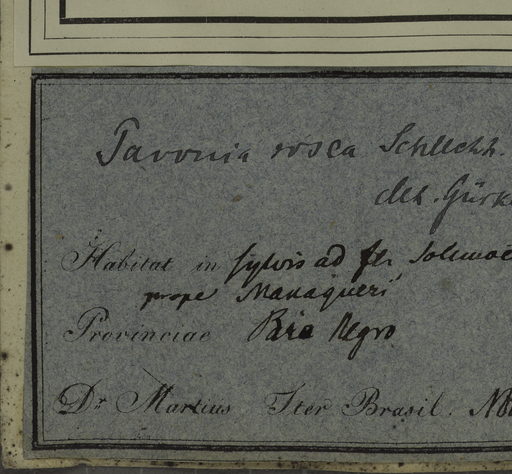 Pavonia rosea Schlechh.
det. Gürke
Habitat in sylvis ad fl. Solimoë
prope Manaqueri
Provinciae Rio Negro
Dr Martius Iter Brasil. Nov